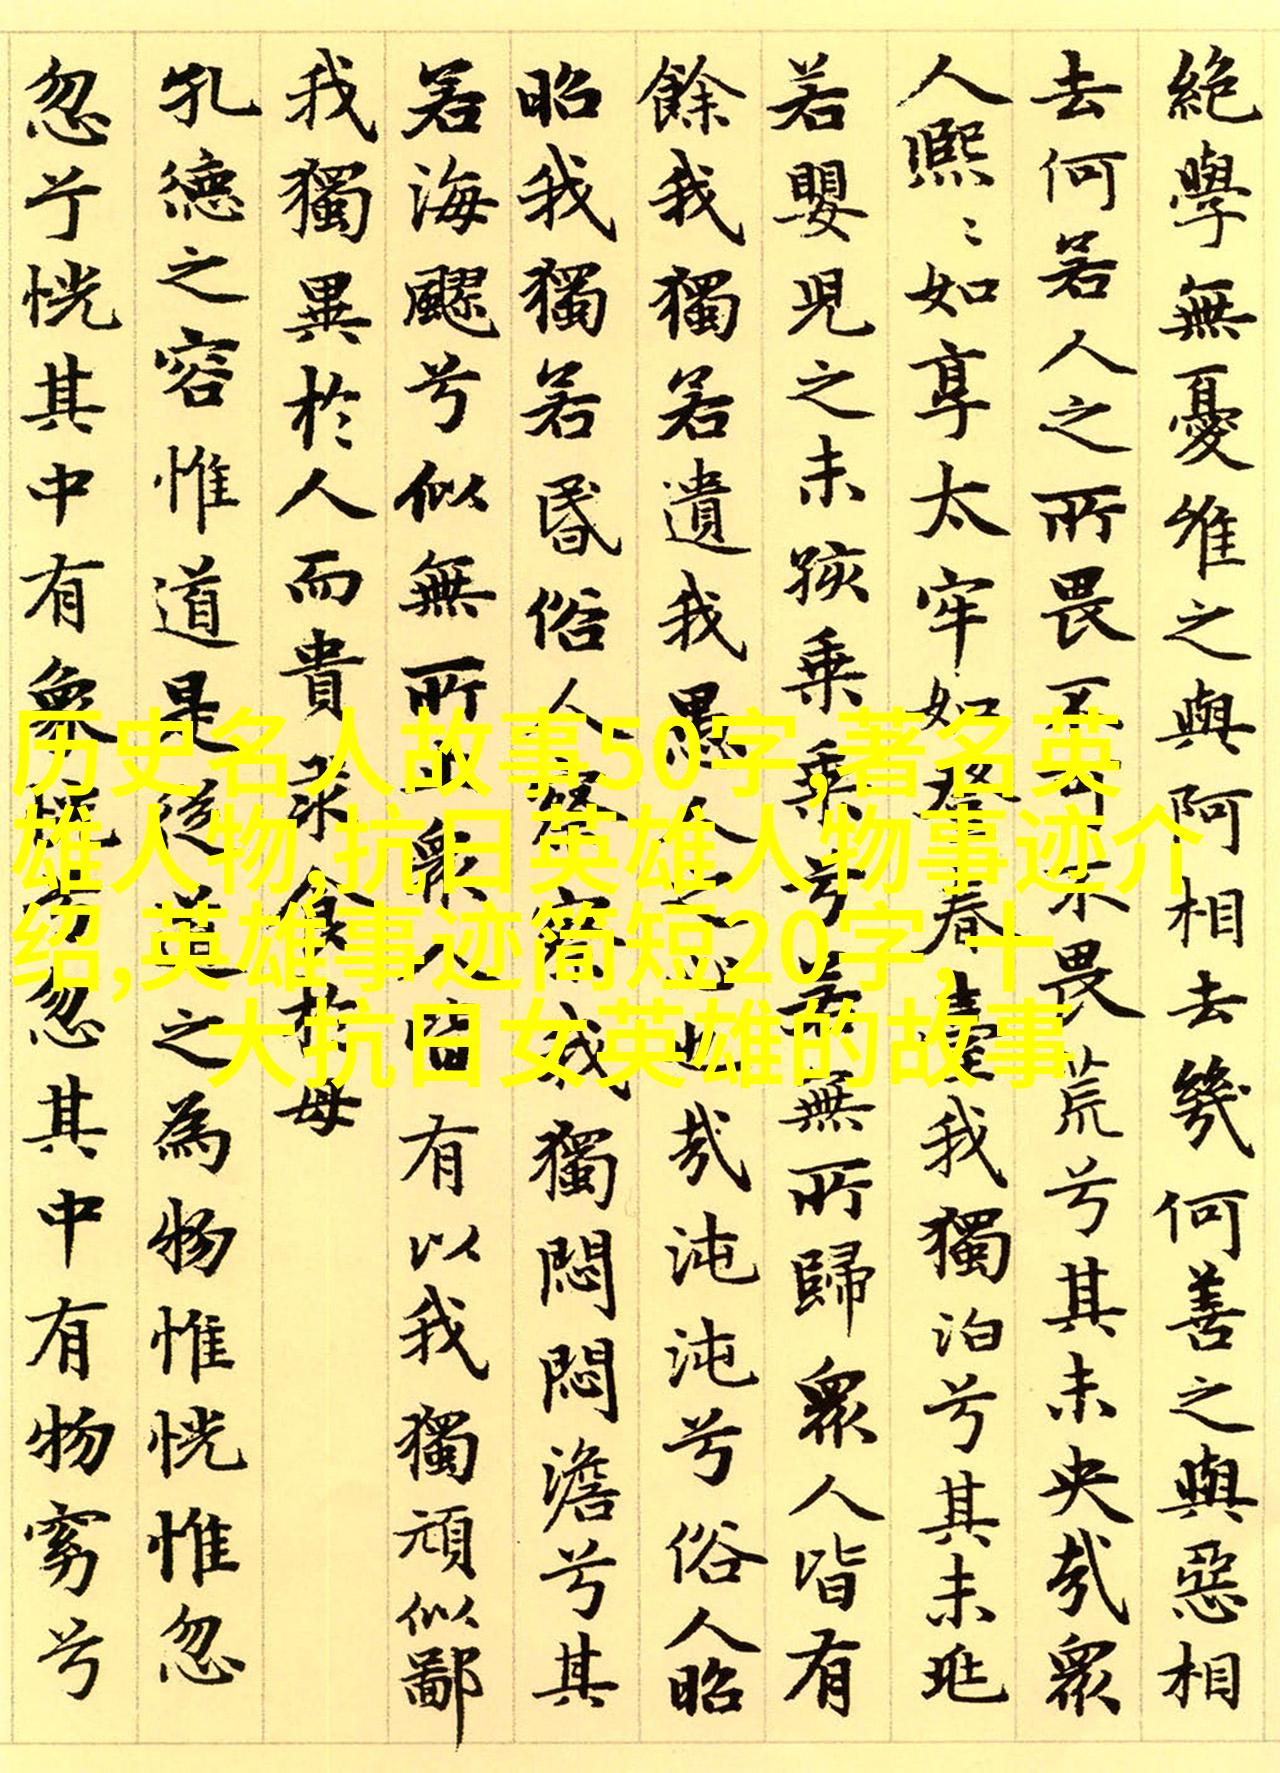 絶學無憂維之與阿相去幾何善之與惡相
去何若人之所畏不可不畏荒兮其未央哉眾
人熙〻如享太牢如登春臺我獨泊兮其未兆
若嬰兒之未孩乗乗兮若無所歸眾人皆有
餘我獨若遺我愚人之心也哉沌沌兮俗人昭
昭我獨若昬俗人察察我獨悶悶澹兮其
若海飂兮似無所止眾人皆有以我獨頑似鄙
我獨異於人而貴求食於母
孔德之容惟道是從道之為物惟恍惟忽
忽兮恍其中有象恍兮忽其中有物窈兮
历史名人故事50字,著名英
雄人物,抗日英雄人物事迹介
绍,英雄事迹简短20字,十
大抗日女英雄的故事